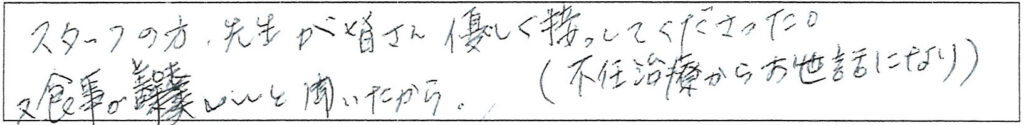 スタッフの方、先生が皆さん優しく接っしてくださった。
又食事がいいと聞いたから。(不任治療からお世話になり)